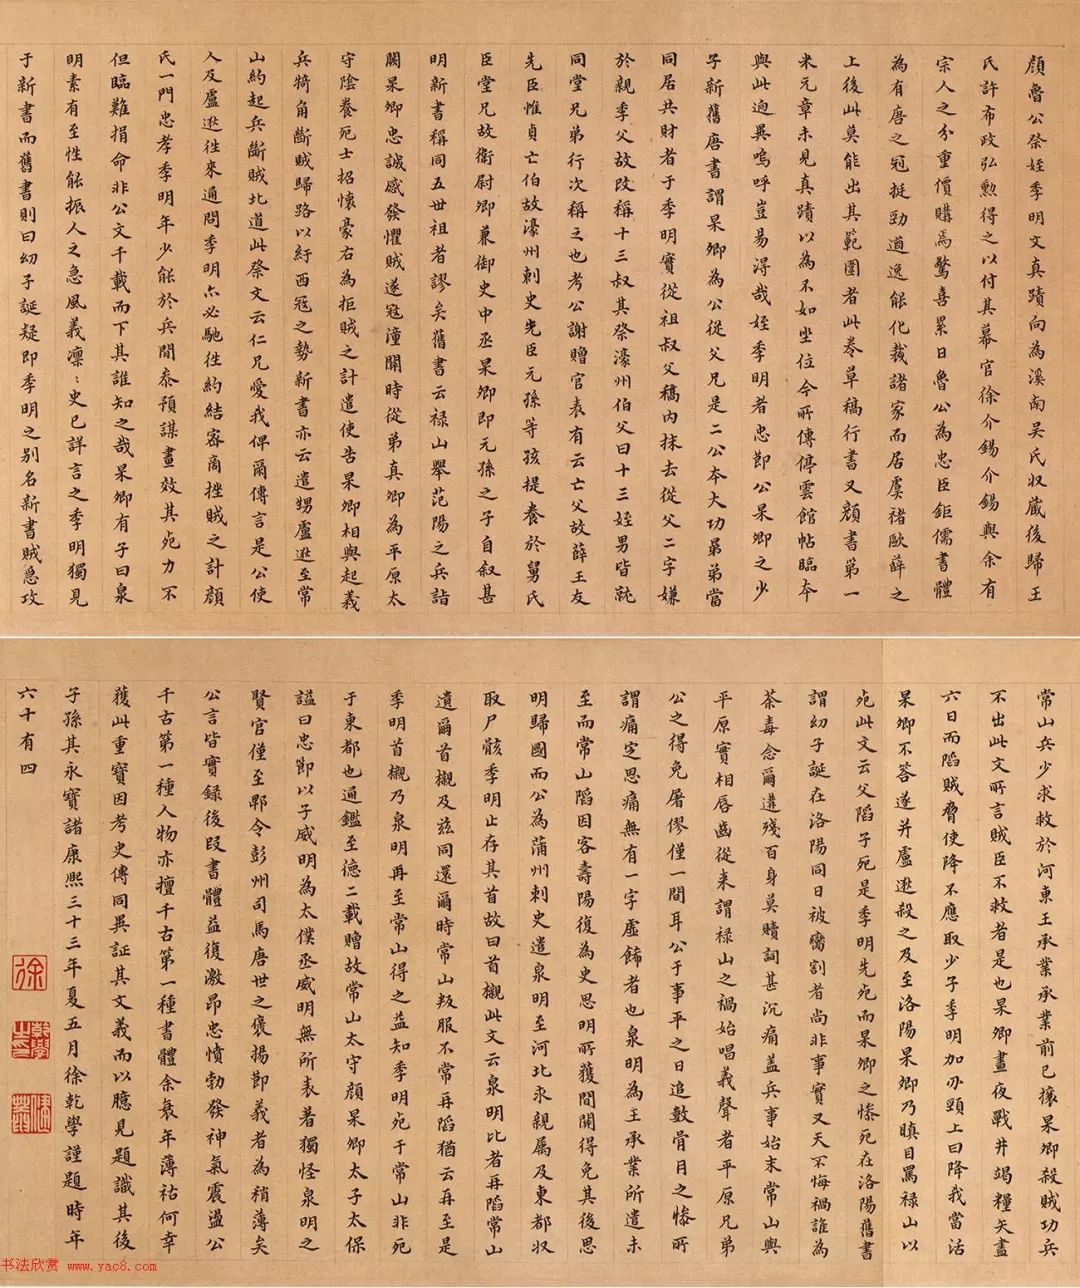 顏魯公祭姪季明文真蹟向為溪南吳氏収藏後歸王
氏許布政弘勲得之以付其幕官徐介錫介錫與余有
宗人之分重價購焉驚喜累日魯公為忠臣鉅儒書體
為有唐之冠挺勁遒逸能化裁諸家而居虞褚歐薛之
上後此莫能出其範圍者此卷草稿行書又顏書第一
米元章未見真蹟以為不如坐位今所傳停雲館帖臨本
與此迥異嗚呼豈易淂哉姪季明者忠節公杲卿之少
子新舊唐書謂杲卿為公從父兄是二公本大功弟弟當
同居共財者于季明實從祖叔父稿内抹去從父二字嫌
於親季父故改稱十三叔其祭濠州伯父曰十三姪男皆就
同堂兄弟行次稱之也考公謝贈官表有云亡父故薛王友
先臣惟貞亡伯故濠州刺史先臣元孫等孩提養於舅氏
臣堂兄故衛尉卿兼御史中丞杲卿即元孫之子自叙甚
明新書稱同五世祖者謬矣舊書云禄山舉范陽之兵詣
闕杲卿忠誠感發懼賊遂寇潼關時從弟真卿為平原太
守陰養死士招懷豪右為拒賊之計遣使告杲卿相與起義
兵犄角斷賊歸路以紓西冦之勢新書亦云遣甥盧逖至常
山約起兵斷賊北道此祭文云仁兄愛我俾爾傳言是公使
人及盧逖徃來通問季明亦必馳徃約結密商挫賊之計顏
氏一門忠孝季明年少能於兵間叅預謀畫效其死力不
但臨難捐命非公文千載而下其誰知之哉杲卿有子曰泉
明素有至性能振人之急風義凛﹕史已詳言之季明獨見
于新書而舊書則曰幼子誕疑即季明之别名新書賊急攻
常山兵少求救於河東王承業承業前已攘杲卿殺賊功兵
不出此文所言賊臣不救者是也杲卿晝夜戰井竭糧矢盡
六日而陷賊脅使降不應取少子季明加刃頸上曰降我當活
杲卿不答遂并盧逖殺之及至洛陽杲卿乃瞋目罵禄山以
死此文云父陷子死是季明先死而杲卿之慘死在洛陽舊書
謂幼子誕在洛陽同日被臠割者尚非事實又天不悔禍誰為
荼毒念爾遘殘百身莫贖詞甚沉痛盖兵事始末常山與
平原實相唇齒從来謂禄山之禍始唱義聲者平原兄弟
公之得免屠僇僅一間耳公于事平之日追數骨月之慘所
謂痛定思痛無有一字虚飾者也泉明為王承業所遣未
至而常山陷因客壽陽復為史思明所獲間關得免其後思
明歸國而公為蒲州刺史遣泉明至河北求親属及東都収
取尸骸季明止存其首故曰首櫬此文云泉明比者再陷常山
遺爾首櫬及兹同還爾時常山叛服不常再陷猶云再至是
季明首櫬乃泉明再至常山得之益知季明死于常山非死
于東都也通鑑至德二載贈故常山太守顏杲卿太子太保
謚曰忠節以子威明為太僕丞威明無所表著獨怪泉明之
賢官僅至郫令彭州司馬唐世之褒揚節義者為稍薄矣
公言皆實録後叚書體益復激昂忠憤勃發神氣震盪公
千古第一種人物亦擅千古第一種書體余衰年薄祜何幸
獲此重寶因考史傳同異証其文義而以臆見題識其後
子孫其永寶諸康熙三十三年夏五月徐乾學謹題時年
六十有四
徐
乾學之印
健菴
书法欣赏 www.yac8.com